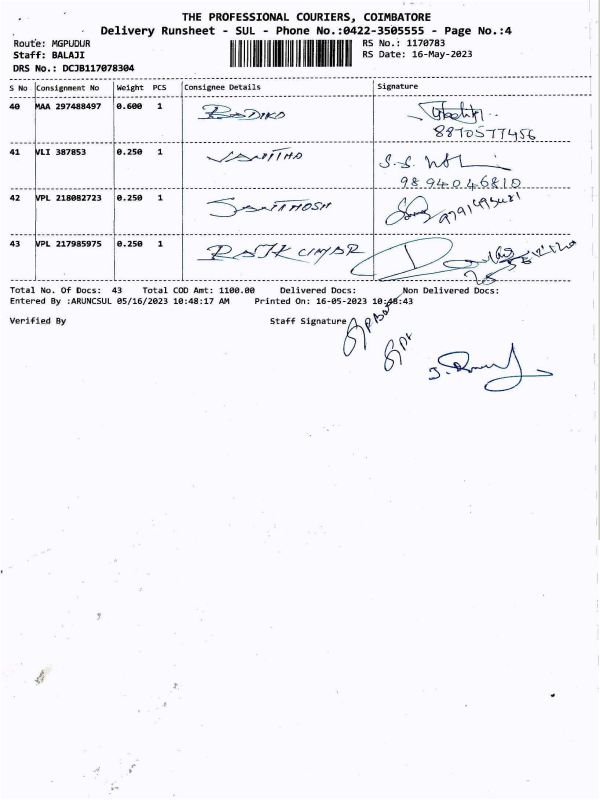 THE PROFESSIONAL COURIERS, COIMBATORE
Delivery Runsheet - SUL - Phone No.:0422-3505555 - Page No.:4
Route: MGPUDUR
RS No.: 1170783
Staff: BALAJI
RS Date: 16-May-2023
DRS No.: DCJB117078304
S No Consignment No Weight PCS Consignee Details Signature
40 MAA 297488497 0.600 1
8870577456
41 VLI 387853 0.250 1 VANITHA
9894046810
42 VPL 218082723 0.250 1 SANTHOSH
43 VPL 217985975 0.250 1 RAJKUMAR
Total No. Of Docs: 43 Total COD Amt: 1100.00 Delivered Docs: Non Delivered Docs:
Entered By :ARUNCSUL 05/16/2023 10:48:17 AM Printed On: 16-05-2023 10:48:43
Verified By Staff Signature